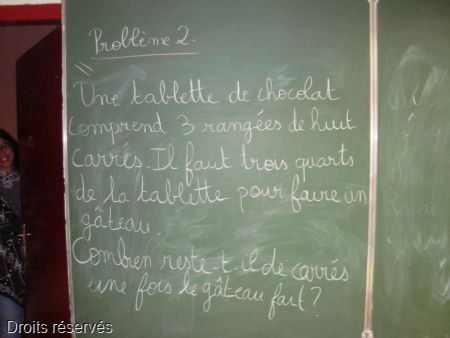 Problème 2.
Une tablette de chocolat
comprend 3 rangées de huit
carrés. Il faut trois quarts
de la tablette pour faire un
gâteau.
Combien reste-t-il de carrés
une fois le gâteau fait?
Droits réservés